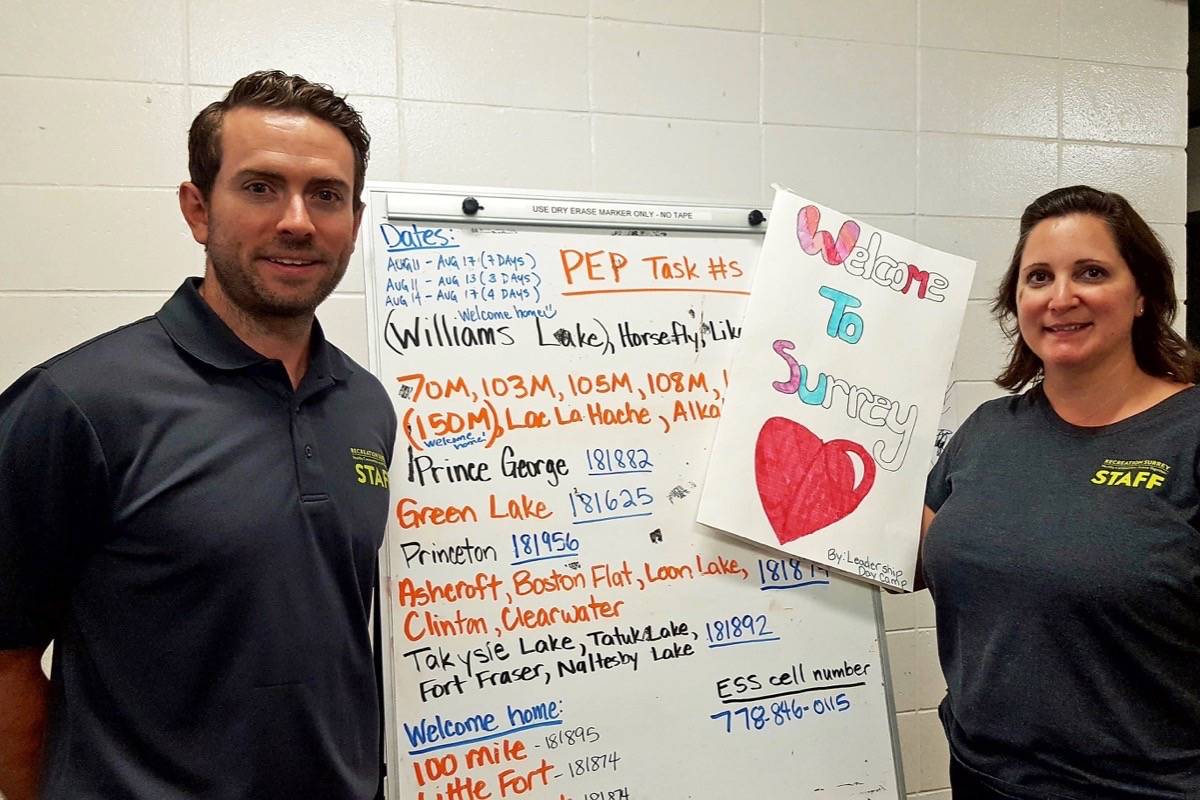 USE DRY ERASE MARKER ONLY - NO TAPE
Dates:
AUG 11 - AUG 17 (7 DAYS)
AUG 11 - AUG 13 (3 DAYS)
AUG 14 - AUG 17 (4 DAYS)
Welcome home!
PEP Task #s
(Williams Lake), Horsefly, Lik
70M, 103M, 105M, 108M,
(150M), Lac La Hache, Alka
Welcome home!
Prince George 181882
Green Lake 181625
Princeton 181956
Ashcroft, Boston Flat, Loon Lake,
Clinton, Clearwater
Takysie Lake, Tatuk Lake, 181892
Fort Fraser, Naltesby Lake
ESS cell number
778-846-0115
Welcome home:
100 mile - 181895
Little Fort - 181874
181874
Welcome
To
Surrey
By: Leadership
Day Camp
RECREATION SURREY
STAFF
RECREATION SURREY
STAFF